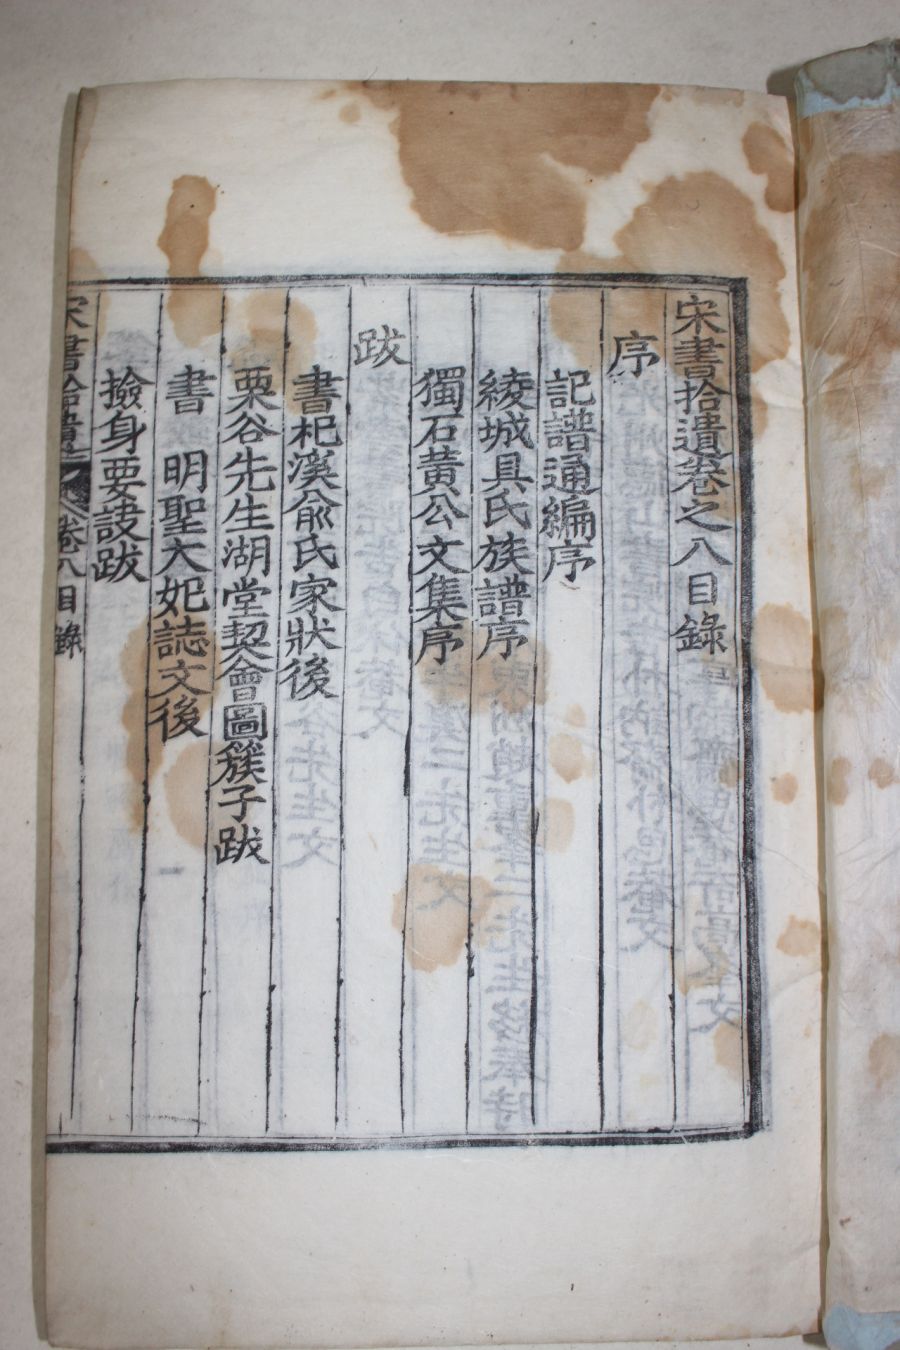 宋書拾遺卷之八目錄
序
記譜通編序
綾城具氏族譜序
獨石黃公文集序
跋
書杞溪俞氏家狀後
栗谷先生湖堂契會圖簇子跋
書 明聖大妃誌文後
撿身要訣跋
宋書拾遺 卷八目錄